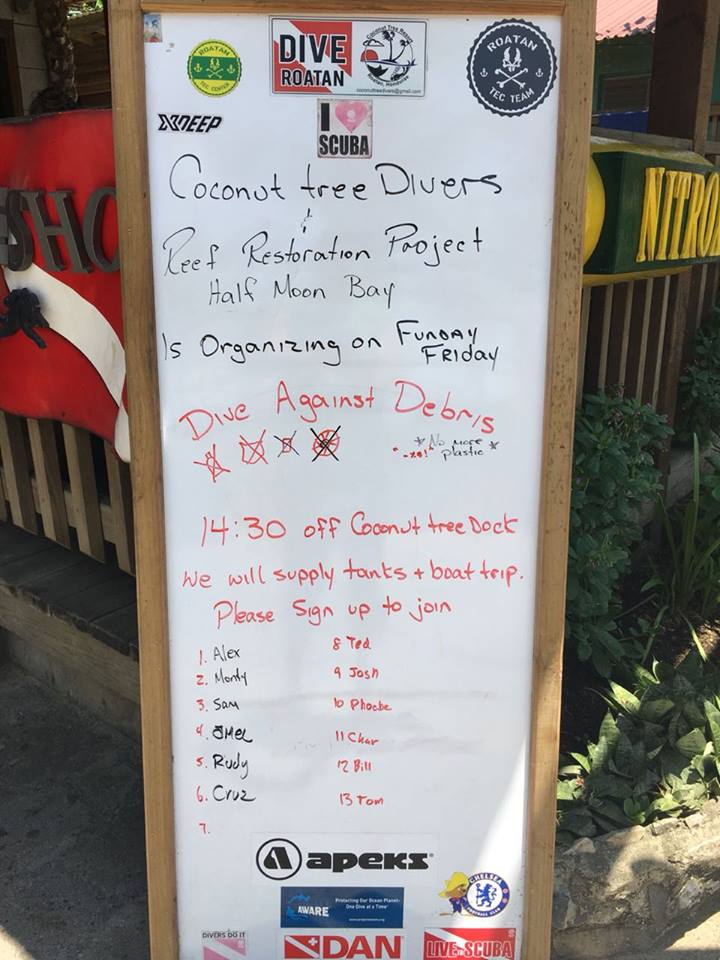 ROATAN
TEC CENTER
DIVE
ROATAN
Coconut Tree Resort
Roatan, Honduras
coconuttreedivers@gmail.com
ROATAN
TEC TEAM
XDEEP
I
SCUBA
SHO
NITRO
Coconut tree Divers
Reef Restoration Project
Half Moon Bay
Is Organizing on FUNDAY
FRIDAY
Dive Against Debris
* No more *
plastic
14:30 off Coconut tree Dock
We will supply tanks + boat trip.
Please Sign up to join
1. Alex
2. Monty
3. Sam
4. Mel
5. Rudy
6. Cruz
7.
8 Ted
9 Josh
10 Phoebe
11 Char
12 Bill
13 Tom
apeks
AWARE
Protecting Our Ocean Planet-
One Dive at a Time
CHELSEA
FOOTBALL CLUB
DIVERS DO IT
DAN
LIVE to SCUBA